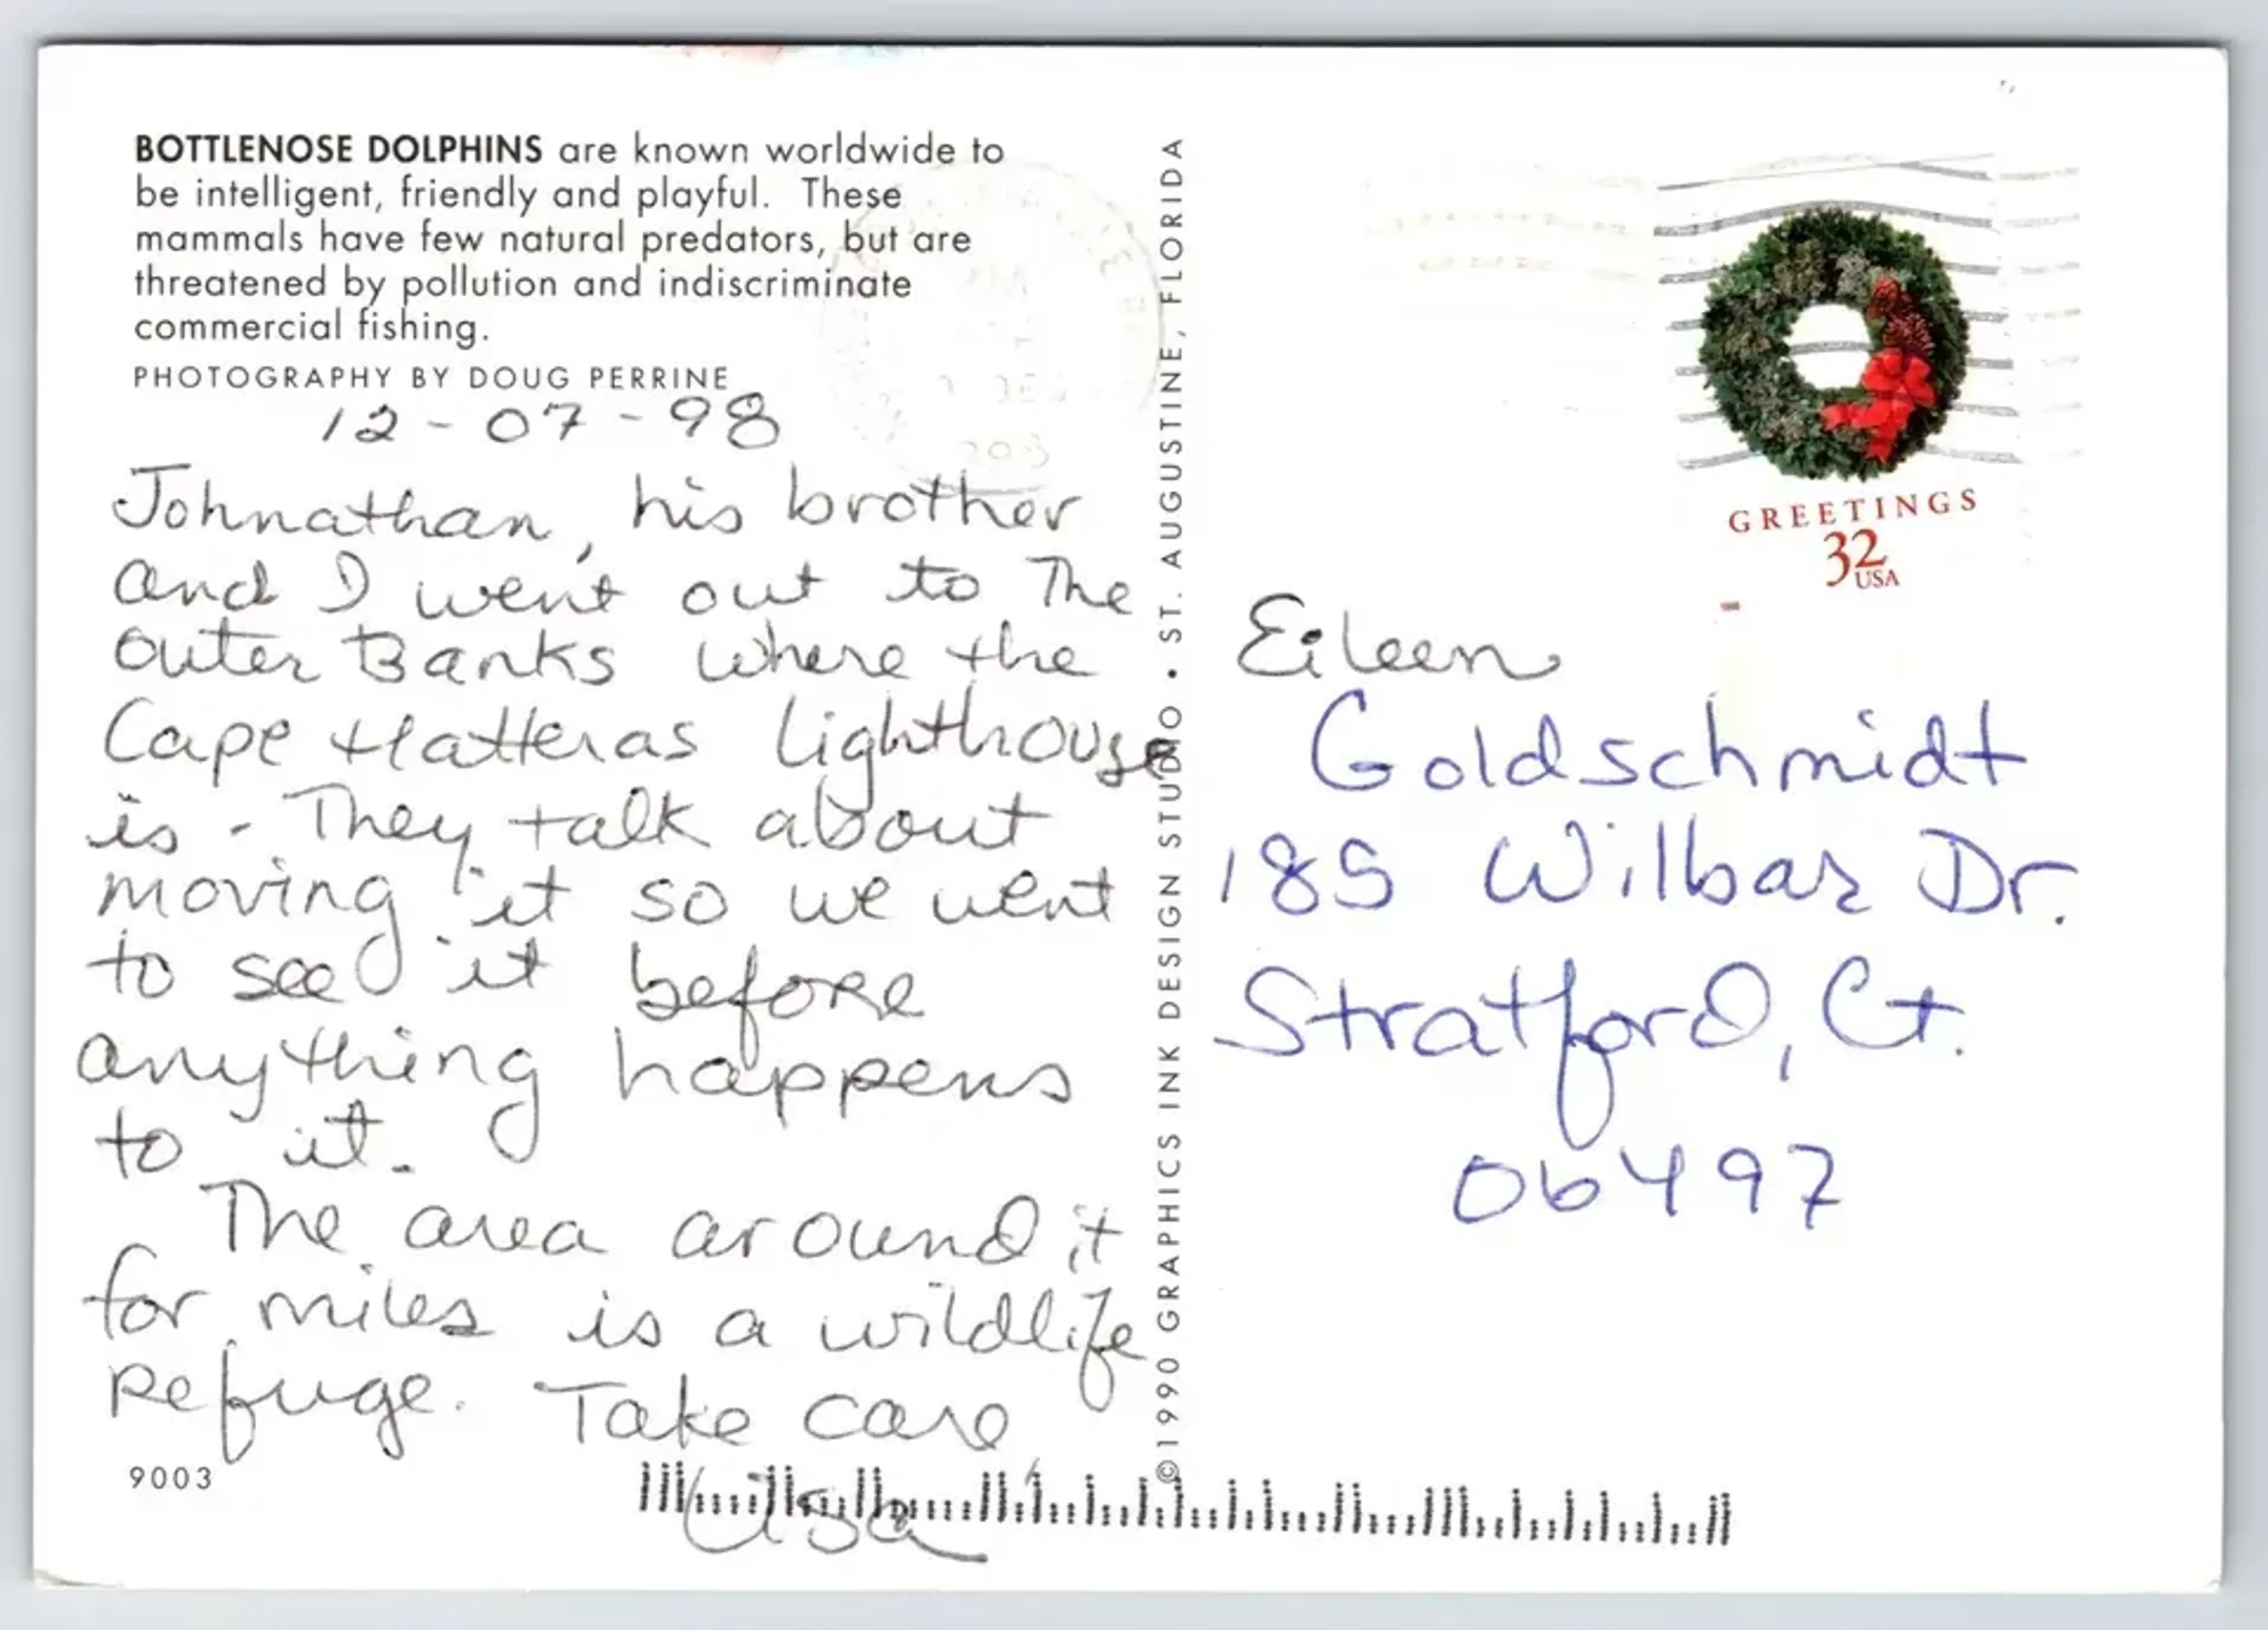 BOTTLENOSE DOLPHINS are known worldwide to
be intelligent, friendly and playful. These
mammals have few natural predators, but are
threatened by pollution and indiscriminate
commercial fishing.
PHOTOGRAPHY BY DOUG PERRINE
12-07-98
Johnathan, his brother
and I went out to The
Outer Banks where the
Cape Hatteras Lighthouse
is. They talk about
moving it so we went
to see it before
anything happens
to it.
The area around it
for miles is a wildlife
Refuge. Take care,
Lisa
9003
©1990 GRAPHICS INK DESIGN STUDIO • ST. AUGUSTINE, FLORIDA
GREETINGS
32
USA
Eileen
Goldschmidt
185 Wilbar Dr.
Stratford, Ct.
06497